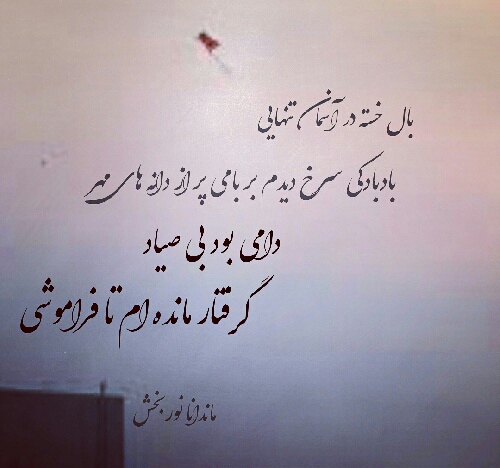 بال خسته در آسمان تنهایی
بادبادکی سرخ دیدم بر بامی پر از دانه های مهر
دامی بود بی صیاد
گرفتار مانده ام تا فراموشی
ماندانا نوربخش